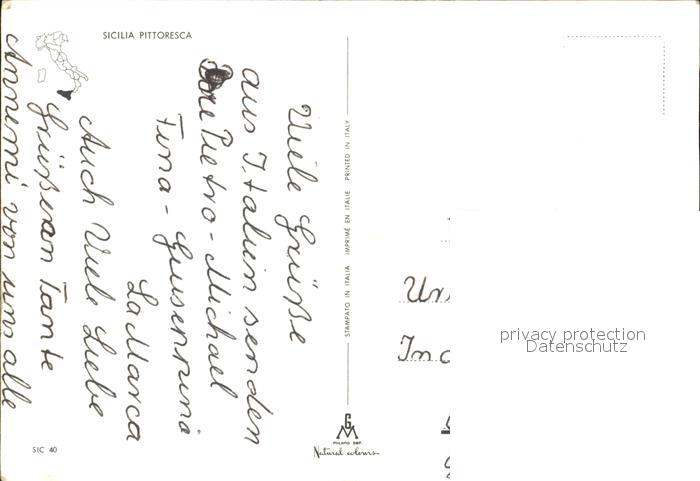 SICILIA PITTORESCA
Viele Grüße
aus Italien senden
Pietro - Michael
Tina - Giuseppina
La Marca
Auch Viele Liebe
Grüße an Tante
Annemi von uns alle
SIC 40
STAMPATO IN ITALIA IMPRIMÉ EN ITALIE PRINTED IN ITALY
GM
MILANO DEP.
Natural colours
Urs
In
privacy protection
Datenschutz